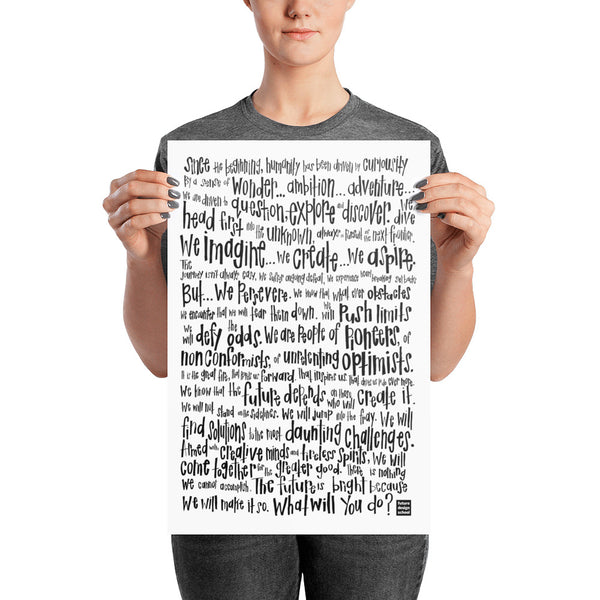 Since the beginning, humanity has been driven by curiosity
By a sense of wonder... ambition... adventure...
We are driven to question, explore and discover. We dive
head first into the unknown, always in pursuit of the next frontier.
We imagine... we create... we aspire.
The journey isn't always easy, we suffer ongoing defeat, we experience heart breaking set backs
But... We Persevere. We know that what ever obstacles
we encounter that we will tear them down. We will push limits
We will defy the odds. We are people of pioneers, of
non conformists, of unrelenting optimists.
It is the great fire, that drives us forward, that inspires us, that drives us ever more.
We know that the future depends on those who will create it.
We will not stand on the sidelines. We will jump into the fray. We will
find solutions to the most daunting challenges.
Armed with creative minds and tireless spirits, we will
come together for the greater good. There is nothing
we cannot accomplish. The future is bright because
we will make it so. What will you do?
future
design
school